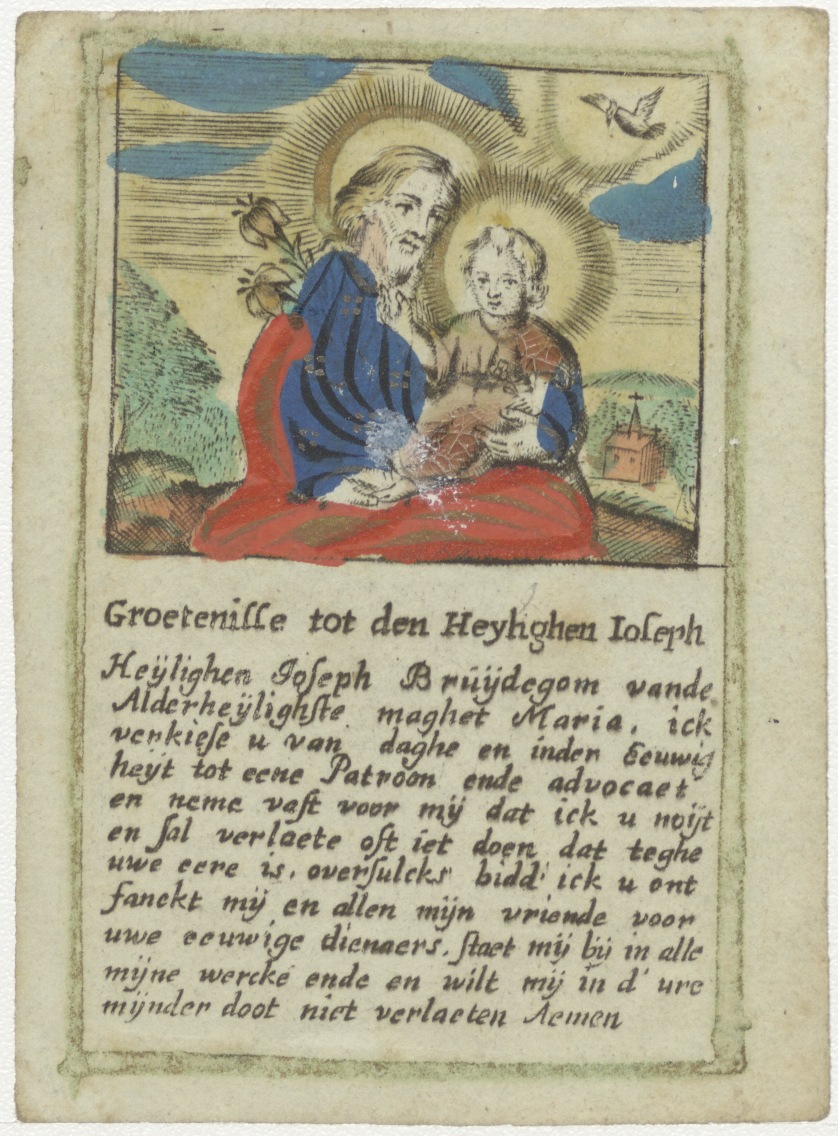 Groetenisse tot den Heylighen Ioseph
Heÿlighen Joseph Brúÿdegom vande
Alderheÿlighste maghet Maria, ick
verkiese u van daghe en inder Eeuwig
heÿt tot eene Patroon ende advocaet
en neme vast voor mÿ dat ick u noÿt
en sal verlaete oft iet doen dat teghe
uwe eere is, oversulcks bidd' ick u ont
fanckt mÿ en allen mÿn vriende voor
uwe eeuwige dienaers, staet mÿ bÿ in alle
mÿne wercke ende en wilt mÿ in d' ure
mÿnder doot niet verlaeten Aemen